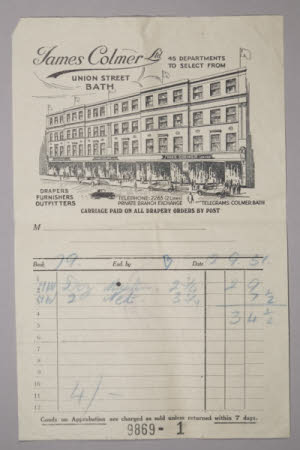 James Colmer Ltd
45 DEPARTMENTS
TO SELECT FROM
UNION STREET
BATH
DRAPERS
FURNISHERS
OUTFITTERS
TELEPHONE: 2265 (2 Lines)
PRIVATE BRANCH EXCHANGE
TELEGRAMS: COLMER BATH
CARRIAGE PAID ON ALL DRAPERY ORDERS BY POST
M
Book 79 Exd. by B Date
1
2 9
2
4 3 4½
5
6
7
8
9
10
11 4/-
12
Goods on Approbation are charged as sold unless returned within 7 days.
9869- 1